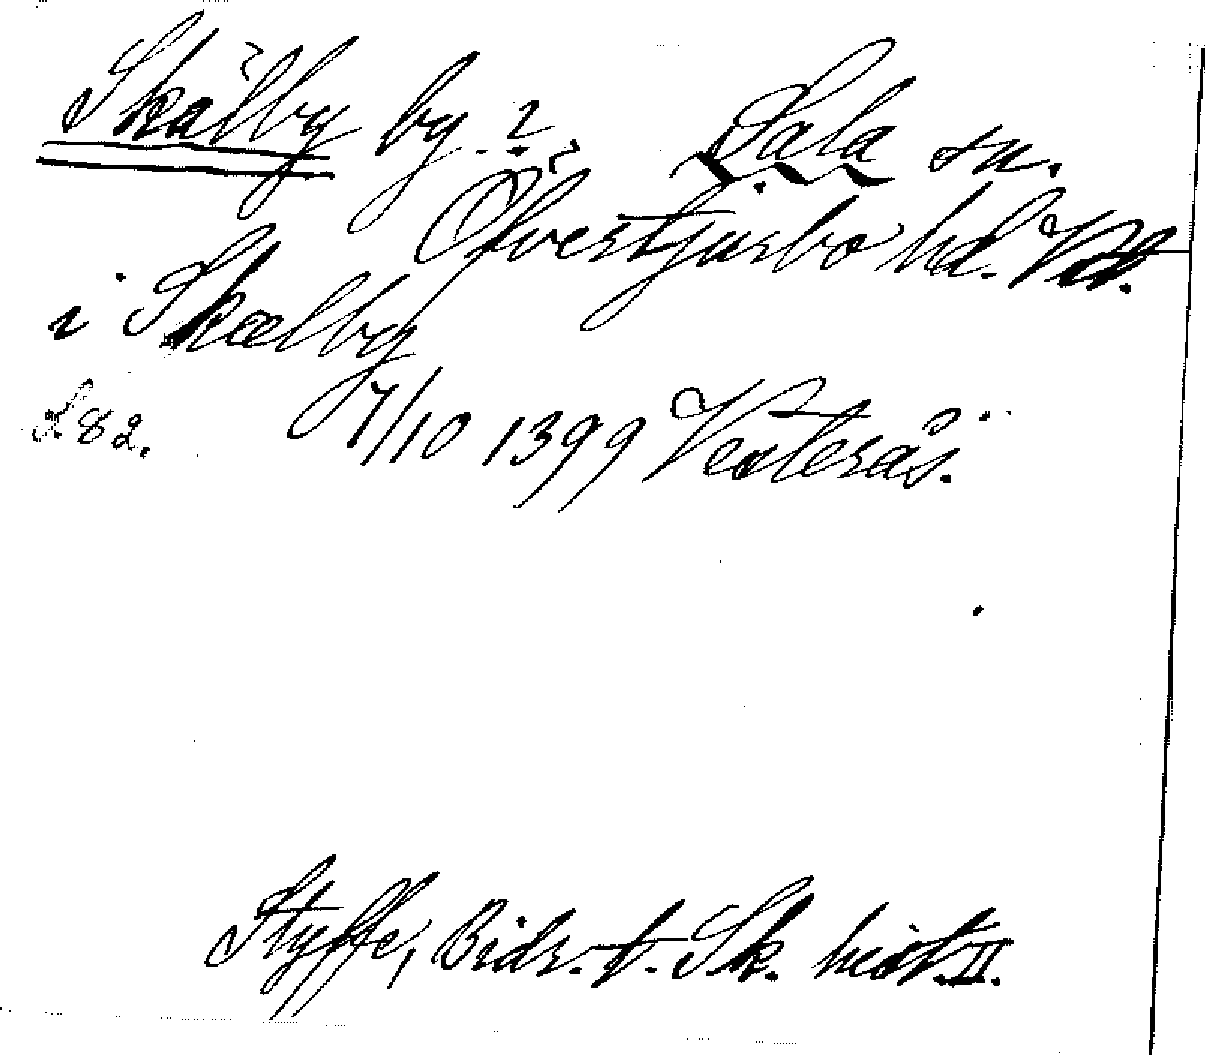 Skälby by. 2. Sala sn.
Öfvertjurbo hd. Vstm.
i Skælby
S. 82. 7/10 1399 Vesterås.
Styffe, Bidr. t. Sk. hist. II.